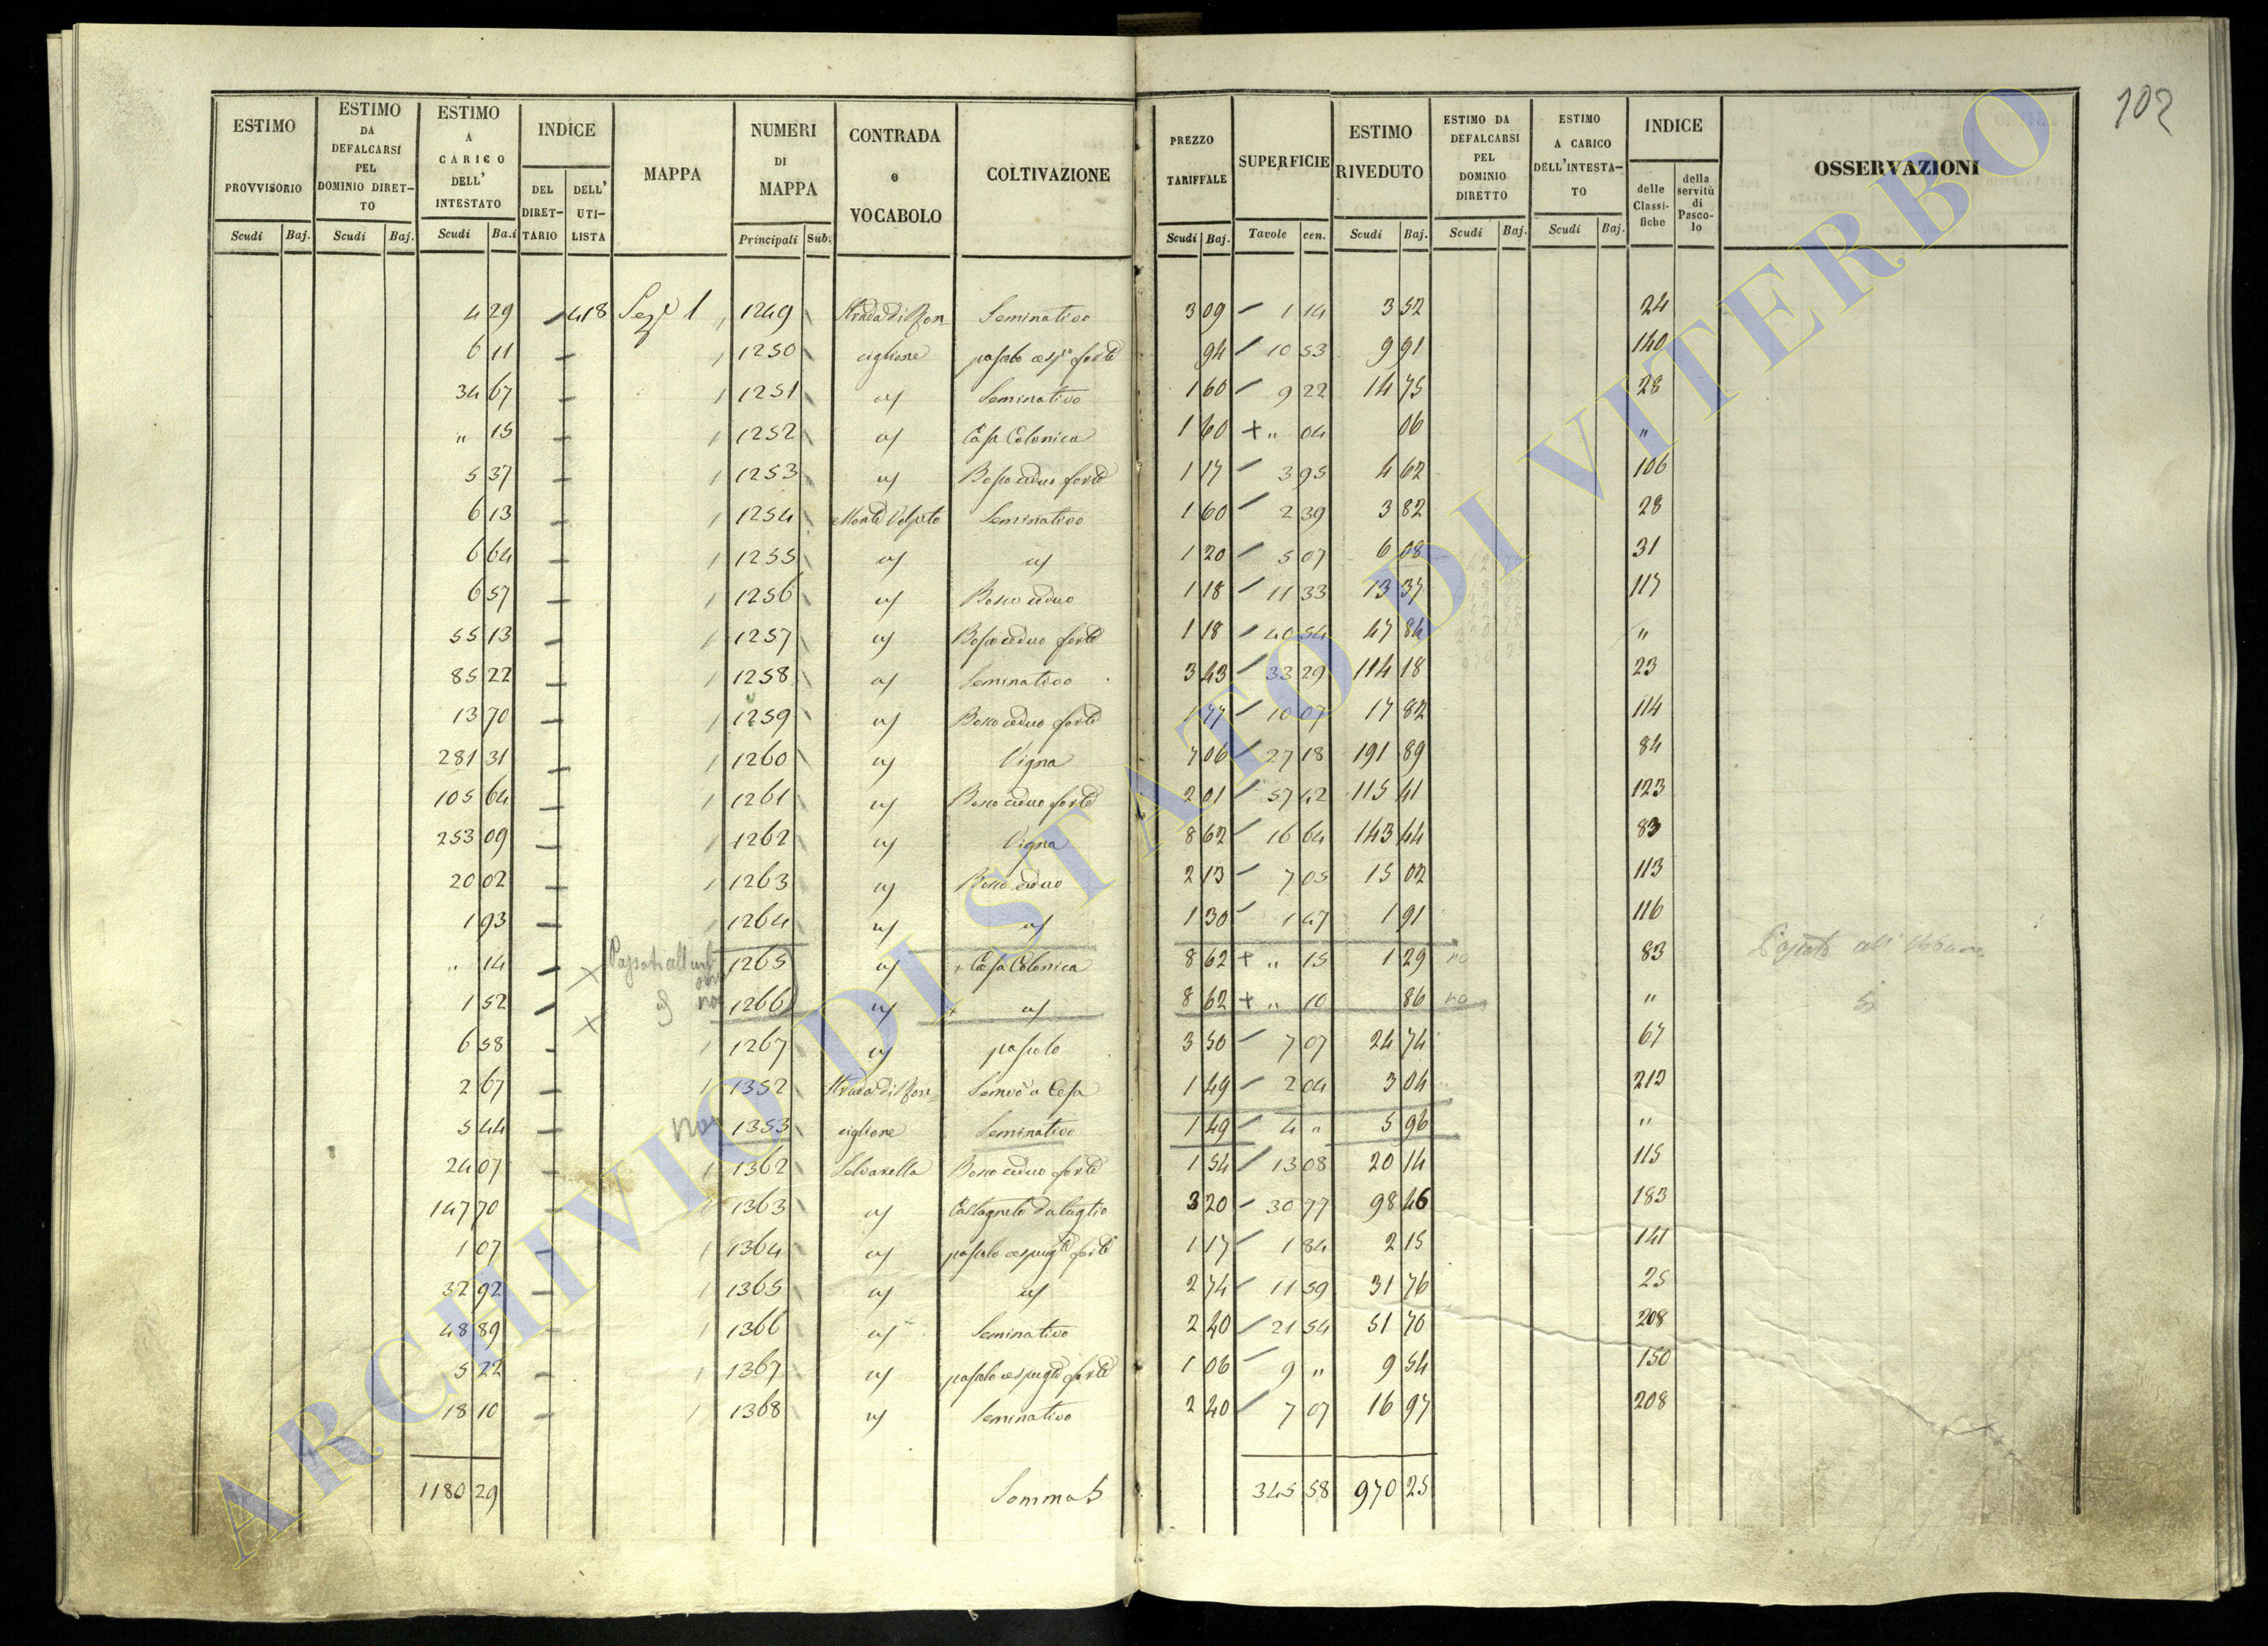 102
ESTIMO PROVVISORIO | ESTIMO DA DEFALCARSI PEL DOMINIO DIRETTO | ESTIMO A CARICO DELL' INTESTATO | INDICE DEL DIRETTARIO | DELL' UTILISTA | MAPPA | NUMERI DI MAPPA | CONTRADA o VOCABOLO | COLTIVAZIONE | PREZZO TARIFFALE | SUPERFICIE | ESTIMO RIVEDUTO | ESTIMO DA DEFALCARSI PEL DOMINIO DIRETTO | ESTIMO A CARICO DELL'INTESTATO | INDICE delle Classifiche | della servitù di Pascolo | OSSERVAZIONI
Scudi | Baj. | Scudi | Baj. | Scudi | Ba.i | Principali | Sub. | Scudi | Baj. | Tavole | cen. | Scudi | Baj. | Scudi | Baj. | Scudi | Baj.
4 29 | 418 | Sez.e 1 | 1249 | Strada di Ron- | Seminativo | 3 09 | 1 14 | 3 52 | 24
6 11 | 1250 | ciglione | pascolo cesp.o forte | 94 | 10 53 | 9 91 | 140
34 67 | 1251 | " | Seminativo | 1 60 | 9 22 | 14 75 | 28
" 15 | 1252 | " | Casa Colonica | 1 60 | + " 04 | 06 | "
5 37 | 1253 | " | Bosco ceduo forte | 1 17 | 3 95 | 4 62 | 106
6 13 | 1254 | Monte Volpito | Seminativo | 1 60 | 2 39 | 3 82 | 28
6 64 | 1255 | " | " | 1 20 | 5 07 | 6 08 | 31
6 57 | 1256 | " | Bosco ceduo | 1 18 | 11 33 | 13 37 | 117
55 13 | 1257 | " | Bosco ceduo forte | 1 18 | 40 54 | 47 84 | "
85 22 | 1258 | " | Seminativo | 3 43 | 33 29 | 114 18 | 23
13 70 | 1259 | " | Bosco ceduo forte | 1 77 | 10 07 | 17 82 | 114
281 31 | 1260 | " | Vigna | 7 06 | 27 18 | 191 89 | 84
105 64 | 1261 | " | Bosco ceduo forte | 2 01 | 57 42 | 115 41 | 123
253 09 | 1262 | " | Vigna | 8 62 | 16 64 | 143 44 | 83
20 02 | 1263 | " | Bosco ceduo | 2 13 | 7 05 | 15 02 | 113
1 93 | 1264 | " | " | 1 30 | 1 47 | 1 91 | 116
" 14 | × | 1265 | " | + Casa Colonica | 8 62 | + " 15 | 1 29 | no | 83
1 52 | × | no | 1266 | " | + " | 8 62 | + " 10 | 86 | no | "
6 58 | 1267 | " | pascolo | 3 50 | 7 07 | 24 74 | 67
2 67 | 1352 | Strada di Ron- | 1 49 | 2 04 | 3 04 | 212
5 44 | no | 1353 | ciglione | Seminativo | 1 49 | 4 " | 5 96 | "
24 07 | 1362 | Selvarella | Bosco ceduo forte | 1 54 | 13 08 | 20 14 | 115
147 70 | 1363 | " | Castagneto da taglio | 3 20 | 30 77 | 98 46 | 183
1 07 | 1364 | " | pascolo cespug.to forte | 1 17 | 1 84 | 2 15 | 141
32 92 | 1365 | " | " | 2 74 | 11 59 | 31 76 | 25
48 89 | 1366 | " | Seminativo | 2 40 | 21 54 | 51 70 | 208
5 22 | 1367 | " | pascolo cespug.to forte | 1 06 | 9 " | 9 54 | 150
18 10 | 1368 | " | Seminativo | 2 40 | 7 07 | 16 97 | 208
1180 29 | Somma | 345 58 | 970 25
ARCHIVIO DI STATO DI VITERBO